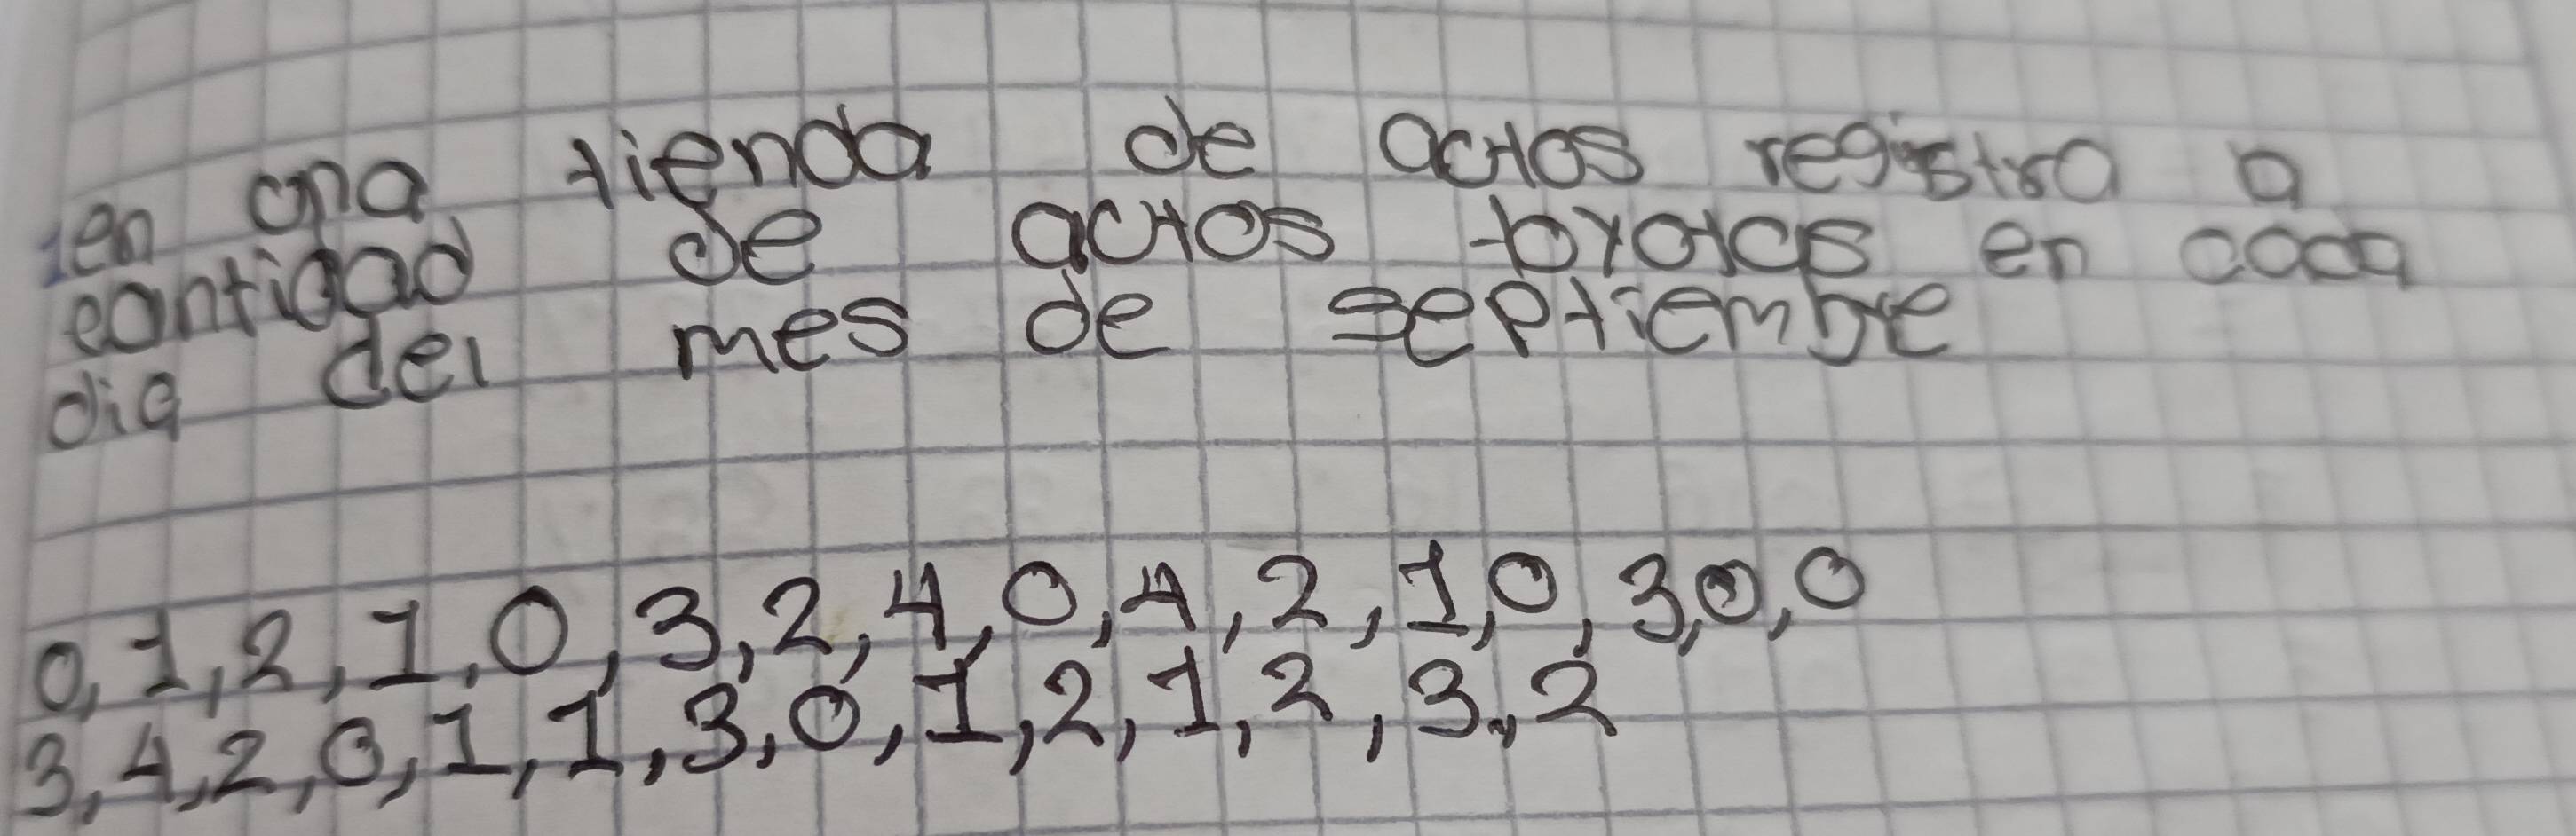 en una tienda de actos registra a
cantidad de actos en cada
dia del mes de septiembre
0,1,2,1,0,3,2,4,0,4,2,1,0,3,0,0
3,4,2,0,1,1,3,0,1,2,1,2,3,2